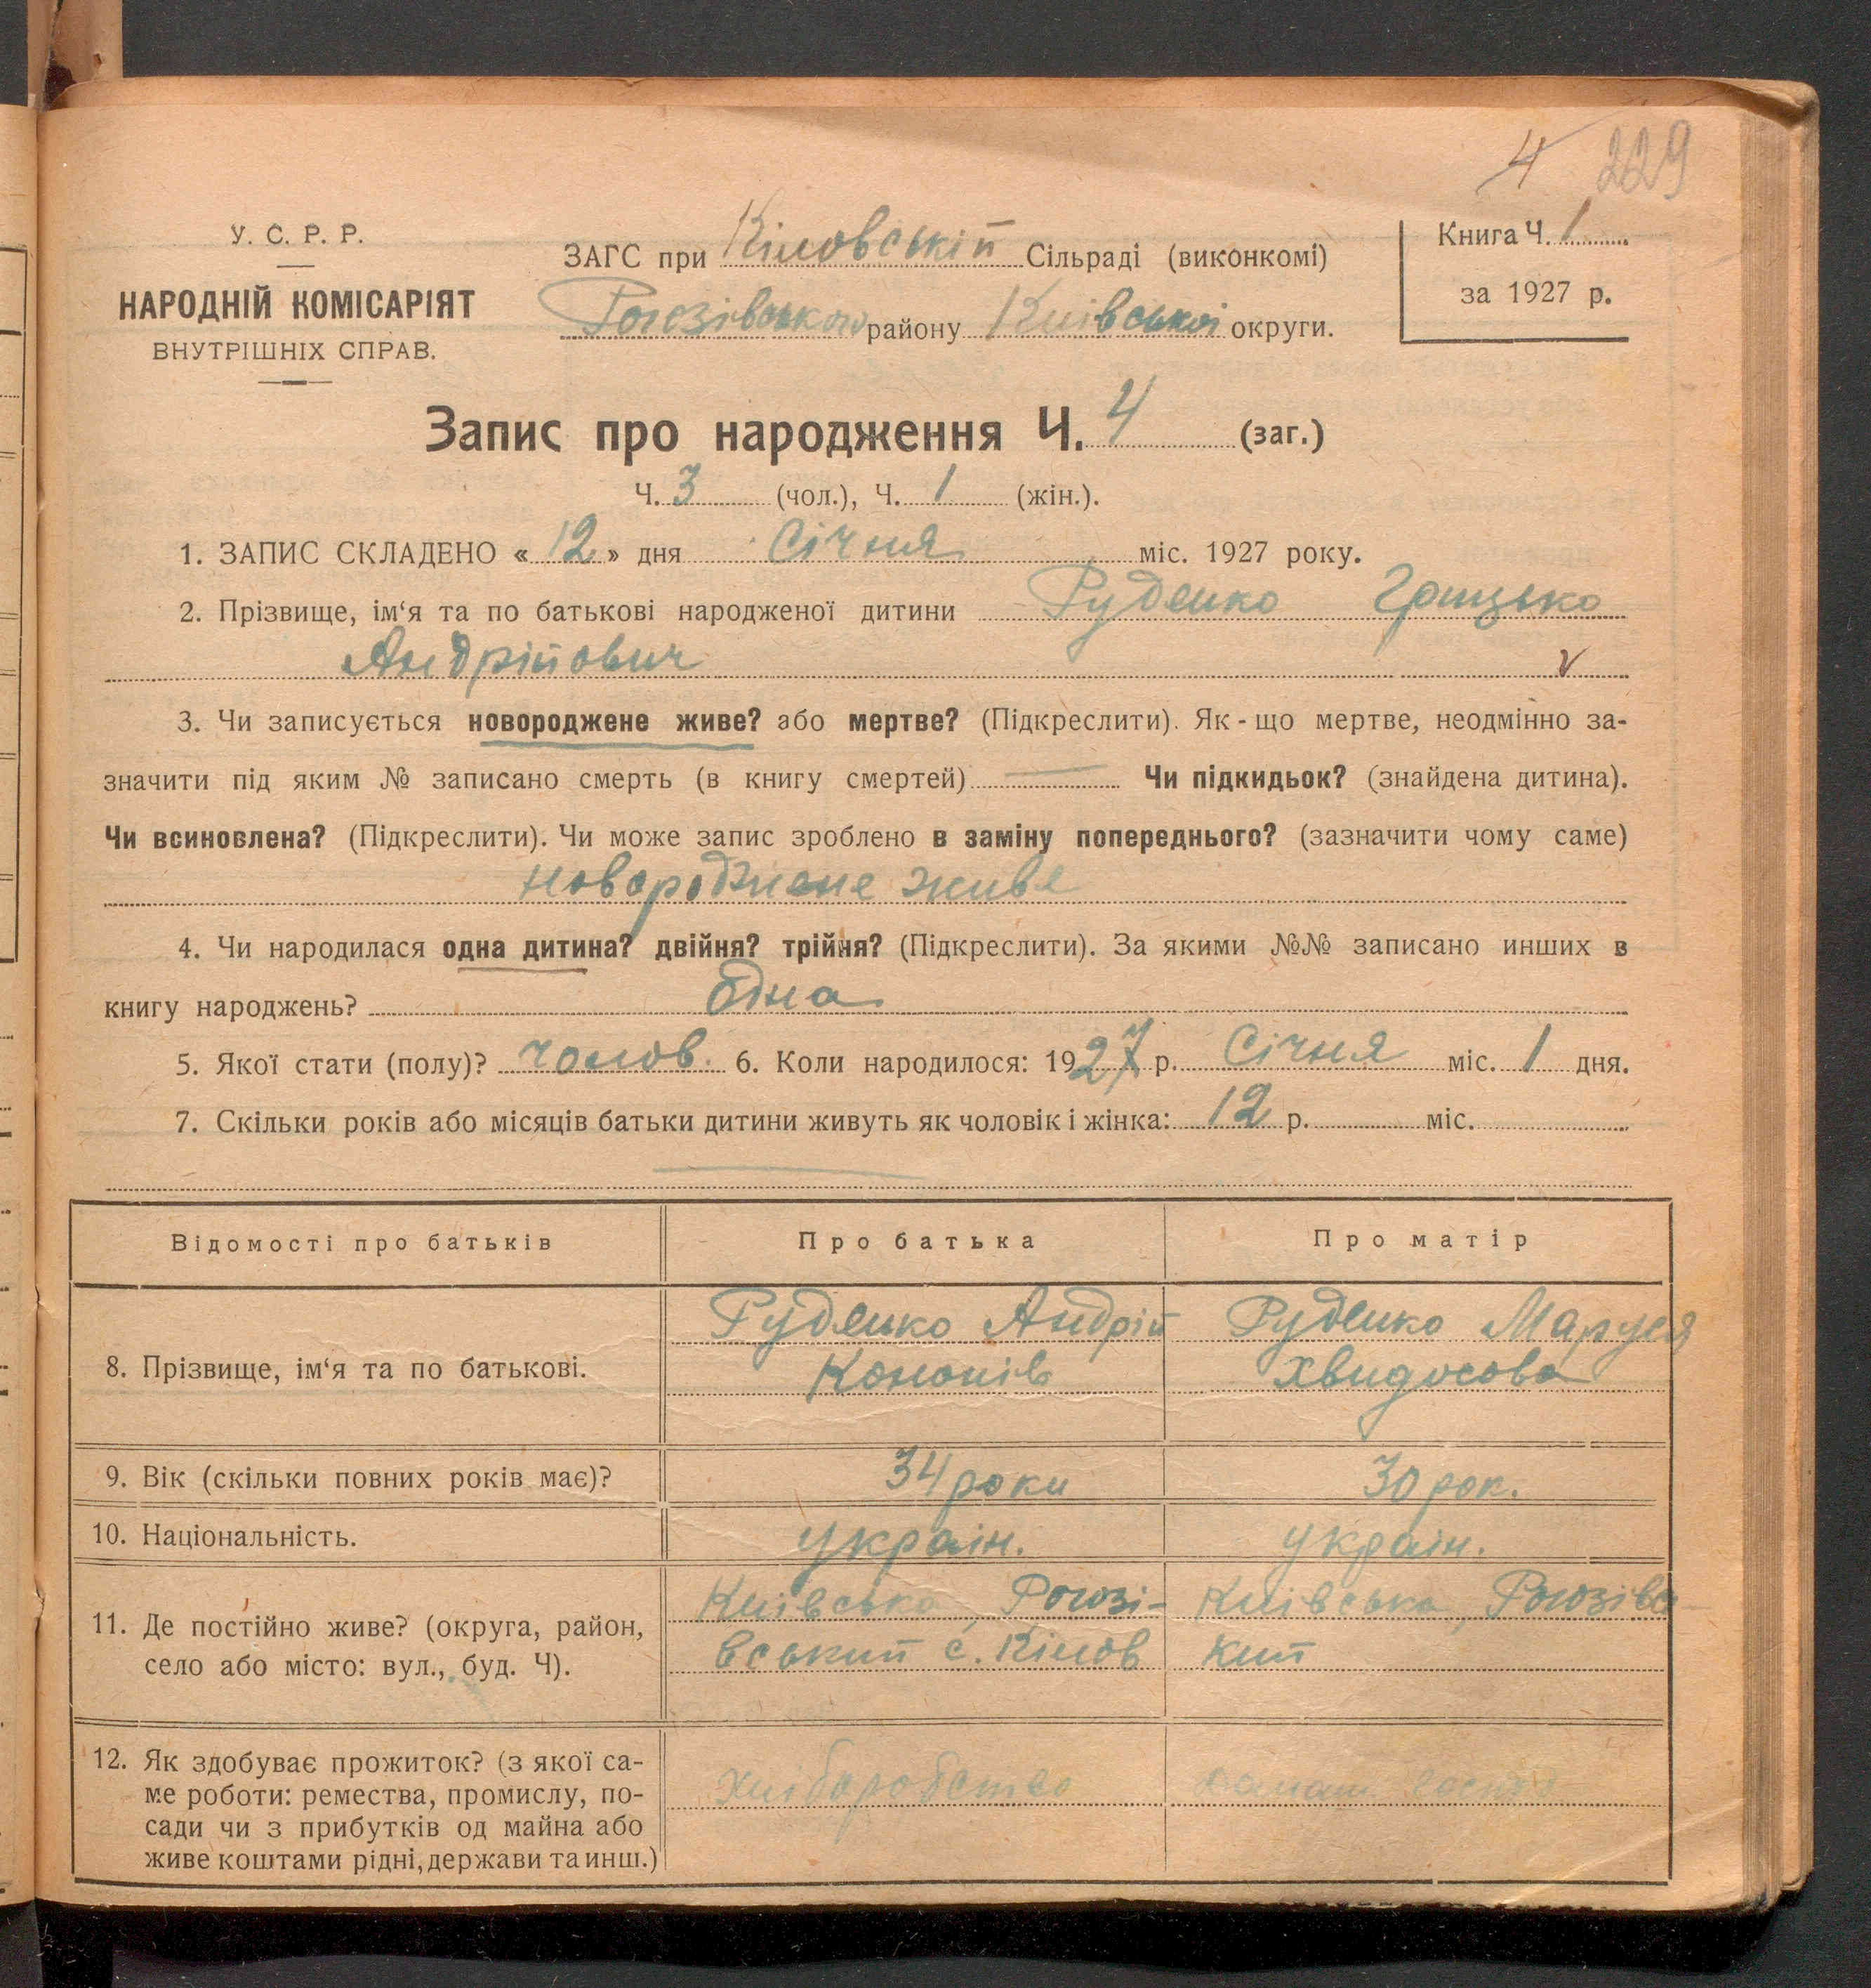 4 229
У. С. Р. Р.
НАРОДНІЙ КОМІСАРІЯТ
ВНУТРІШНІХ СПРАВ.
ЗАГС при Кіловській Сільраді (виконкомі)
Рогозівського району Київської округи.
Книга Ч. 1
за 1927 р.
Запис про народження Ч. 4 (заг.)
Ч. 3 (чол.), Ч. 1 (жін.).
1. ЗАПИС СКЛАДЕНО « 12 » дня Січня міс. 1927 року.
2. Прізвище, ім‘я та по батькові народженої дитини Руденко Грицько
Андрійович v
3. Чи записується новороджене живе? або мертве? (Підкреслити). Як-що мертве, неодмінно за-
значити під яким № записано смерть (в книгу смертей) — Чи підкидьок? (знайдена дитина).
Чи всиновлена? (Підкреслити). Чи може запис зроблено в заміну попереднього? (зазначити чому саме)
новороджене живе
4. Чи народилася одна дитина? двійня? трійня? (Підкреслити). За якими №№ записано инших в
книгу народжень? Одна
5. Якої стати (полу)? чолов. 6. Коли народилося: 1927 р. Січня міс. 1 дня.
7. Скільки років або місяців батьки дитини живуть як чоловік і жінка: 12 р. міс.
Відомості про батьків Про батька Про матір
8. Прізвище, ім‘я та по батькові.
Руденко Андрій
Кононів
Руденко Маруся
Хвидосова
9. Вік (скільки повних років має)? 34 роки 30 рок.
10. Національність. Україн. Україн.
11. Де постійно живе? (округа, район,
село або місто: вул., буд. Ч).
Київська, Рогозі-
вський с. Кілов
Київська, Рогозівс
кий
12. Як здобуває прожиток? (з якої са-
ме роботи: ремества, промислу, по-
сади чи з прибутків од майна або
живе коштами рідні, держави та инш.)
Хліборобство